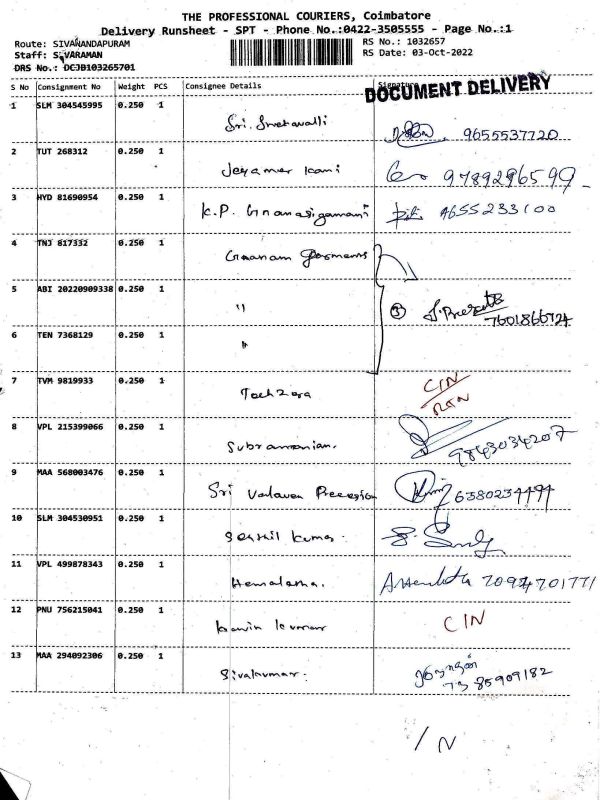 THE PROFESSIONAL COURIERS, Coimbatore
Delivery Runsheet - SPT - Phone No.:0422-3505555 - Page No.:1
Route: SIVANANDAPURAM RS No.: 1032657
Staff: SIVARAMAN RS Date: 03-Oct-2022
DRS No.: DCJD103265701
S No Consignment No Weight PCS Consignee Details Signature
DOCUMENT DELIVERY
1 SLM 304545995 0.250 1 Sri. 9655537720
2 TUT 268312 0.250 1 Jeyamer kani 9789296599
3 HYD 81690954 0.250 1 K.P. Gnanasigamani 9655233100
4 TNJ 817332 0.250 1 Gnanam garments
5 ABI 20220909338 0.250 1 " ③ 7601866724
6 TEN 7368129 0.250 1 "
7 TVM 9819933 0.250 1 TechZora CIN
RTN
8 VPL 215399066 0.250 1 Subramanian. 9843034207
9 MAA 568003476 0.250 1 Sri Valavan Precesion 6380234494
10 SLM 304530951 0.250 1 Senthil kumar
11 VPL 499878343 0.250 1 Hemalatha. 7094701771
12 PNU 756215041 0.250 1 kavin kumar CIN
13 MAA 294092306 0.250 1 Sivakumar. 7385909182
/ N